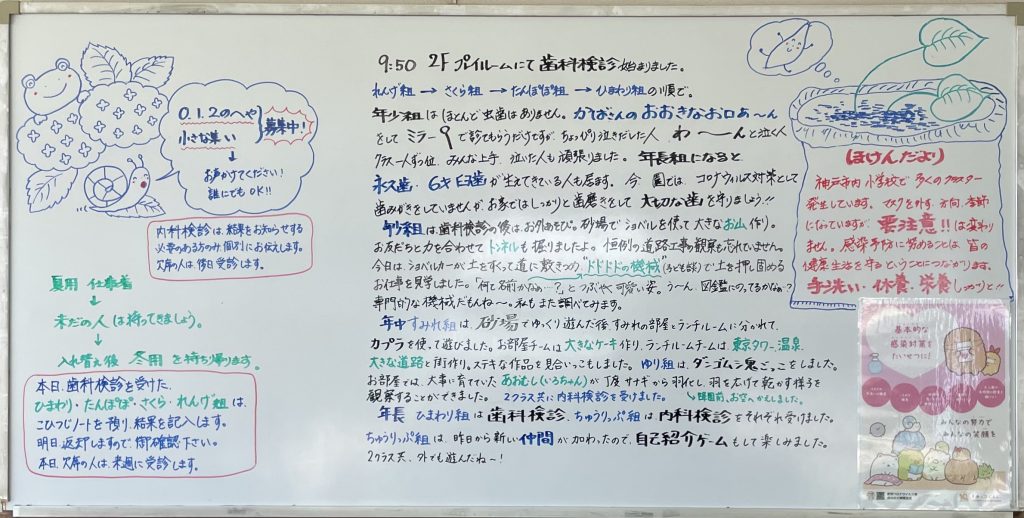 0.1.2のへや
小さな集い
募集中!
↓
お声かけてください!
誰にでもOK!!
内科検診は、結果をお知らせする
必要のある方のみ、個別にお伝えします。
欠席の人は、後日受診します。
夏用 仕事着
↓
未だの人は持ってきましょう。
↓
入れ替え後 冬用を持ち帰ります。
本日、歯科検診を受けた、
ひまわり・たんぽぽ・さくら・れんげ組は、
こひつじノートを預り、結果を記入します。
明日返却しますので、御確認下さい。
本日、欠席の人は、来週に受診します。
9:50 2Fプレイルームにて歯科検診始まりました。
れんげ組 → さくら組 → たんぽぽ組 → ひまわり組の順で。
年少組はほとんど虫歯はありません。かばさんのおおきなお口あ〜ん
をしてミラーで診てもらうだけですが、ちょっぴり泣きだした人、わ〜〜んと泣く人
クラス一人ずつ位、みんな上手、泣いた人も頑張りました。年長組になると
永久歯・6才臼歯が生えてきている人も居ます。今、園では、コロナウィルス対策として
歯みがきをしていませんが、お家ではしっかりと歯磨きをして大切な歯を守りましょう!!
年少組は歯科検診の後は、お外あそび。砂場でショベルを使って大きなお山作り。
お友だちと力を合わせてトンネルも掘りましたよ。恒例の道路工事の観察も忘れていません。
今日は、ショベルカーが土をすくって道に敷きつめ、"ドドドドの機械"(子ども談)で土を押し固める
お仕事を見学しました。「何て名前かなぁ…?」とつぶやく可愛い姿。う〜ん、図鑑にのってるかなぁ?
専門的な機械だもんね〜。私もまた調べてみます。
年中 すみれ組は、砂場でゆっくり遊んだ後、すみれの部屋とランチルームに分かれて、
カプラを使って遊びました。お部屋チームは大きなケーキ作り、ランチルームチームは東京タワー、温泉、
大きな道路と街作り。ステキな作品を見合いっこもしました。ゆり組は、ダンゴムシ鬼ごっこをしました。
お部屋では、大事に育てていたあおむし(いろちゃん)が丁度サナギから羽化し、羽を広げて乾かす様子を
観察することができました。2クラス共に内科検診を受けました。 ↳降園前、お空へかえしました。
年長 ひまわり組は歯科検診、ちゅうりっぷ組は内科検診をそれぞれ受けました。
ちゅうりっぷ組は、昨日から新しい仲間が加わったので、自己紹介ゲームもして楽しみました。
2クラス共、外でも遊んだね〜!
ほけんだより
神戸市内 小学校で多くのクラスター
発生しています。マスクを外す方向、季節
になっていますが、要注意!!は変わり
ません。感染予防に努めることは皆の
健康生活を守るということにつながります。
手洗い・休養・栄養しっかりと!!
基本的な
感染対策を
たいせつに!
みんなの努力で
みんなの笑顔を